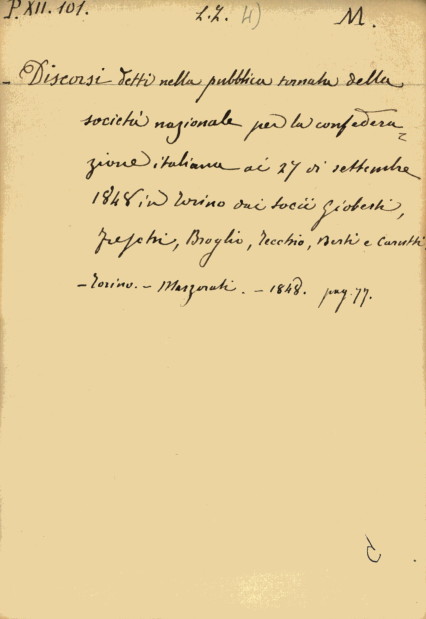 P. XII. 101. L.Z. 4) M.
- Discorsi detti nella pubblica tornata della
società nazionale per la confedera=
zione italiana ai 27 di settembre
1848 in Torino dai socii Gioberti,
Freschi, Broglio, Tecchio, Berti e Carutti,
- Torino. - Marzorati. - 1848. pag. 77.